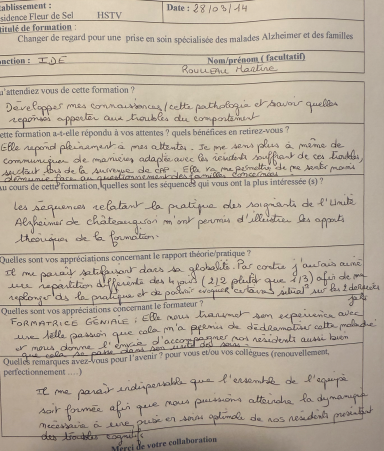 tablissement :
Date : 28/03/14
sidence Fleur de Sel HSTV
titulé de formation :
Changer de regard pour une prise en soin spécialisée des malades Alzheimer et des familles
nction : IDE Nom/prénom ( facultatif)
Rouleau Martine
u'attendiez vous de cette formation ?
Développer mes connaissances / cette pathologie et savoir quelles
réponses apporter aux troubles du comportement
ette formation a-t-elle répondu à vos attentes ? quels bénéfices en retirez-vous ?
Elle répond pleinement à mes attentes. Je me sens plus à même de
communiquer de manières adaptée avec les résidents souffrant de ces troubles,
surtout lors de la survenue de Elle va me permettre de me sentir moins
démunie face au questionnement des familles concernées
u cours de cette formation, quelles sont les séquences qui vous ont la plus intéressée (s) ?
Les séquences relatant la pratique des soignants de l'Unité
Alzheimer de m'ont permis d'illustrer les apports
théoriques de la formation.
Quelles sont vos appréciations concernant le rapport théorie/pratique ?
Il me parait satisfaisant dans sa globalité. Par contre j'aurais aimé
une répartition différente des 4 jours (2/2 plutôt que 1/3) afin de me
replonger ds la pratique et de pouvoir évoquer certaines sur les 2 derniers
jours
Quelles sont vos appréciations concernant le formateur ?
FORMATRICE GÉNIALE : Elle nous transmet son expérience avec
une telle passion que cela m'a permis de dédramatiser cette maladie
et nous donne l'envie d'accompagner nos résidents aussi bien
que cela se passe dans son unité
Quelles remarques avez-vous pour l'avenir ? pour vous et/ou vos collègues (renouvellement,
perfectionnement ....)
Il me parait indispensable que l'ensemble de l'équipe
soit formée afin que nous puissions atteindre la dynamique
nécessaire à une prise en soins optimale de nos résidents présentant
des troubles cognitifs
Merci de votre collaboration